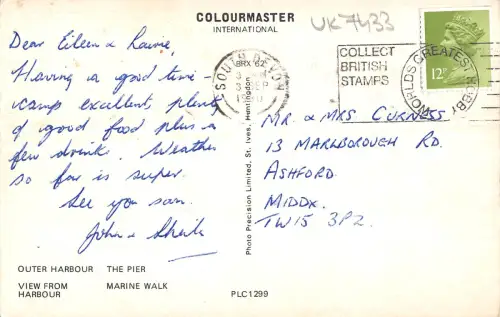 COLOURMASTER
INTERNATIONAL
UK7433
Dear Eileen & Laurie,
Having a good time -
camp excellent plenty
of good food plus a
few drinks. Weather
so far is super.
See you soon.
John & Sheila
OUTER HARBOUR THE PIER
VIEW FROM MARINE WALK
HARBOUR
PLC1299
Photo Precision Limited, St. Ives, Huntingdon
BRX '82
SOUTH DEVON
SEP
COLLECT
BRITISH
STAMPS
WORLDS GREATEST HOBBY
12P
MR & MRS CURNESS
13 MARLBOROUGH RD.
ASHFORD.
MIDDX.
TW15 3PZ.